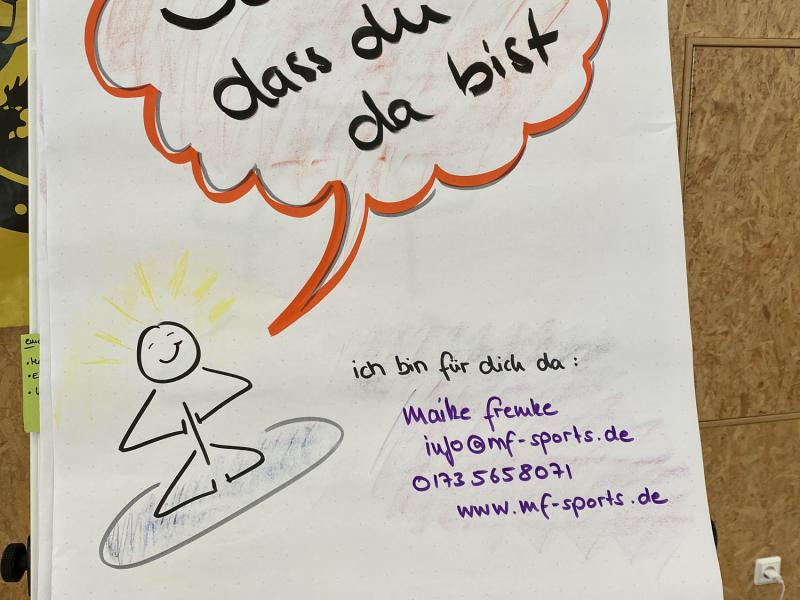 dass du
da bist
ich bin für dich da :
Maike Fremke
info@mf-sports.de
0173 5658071
www.mf-sports.de